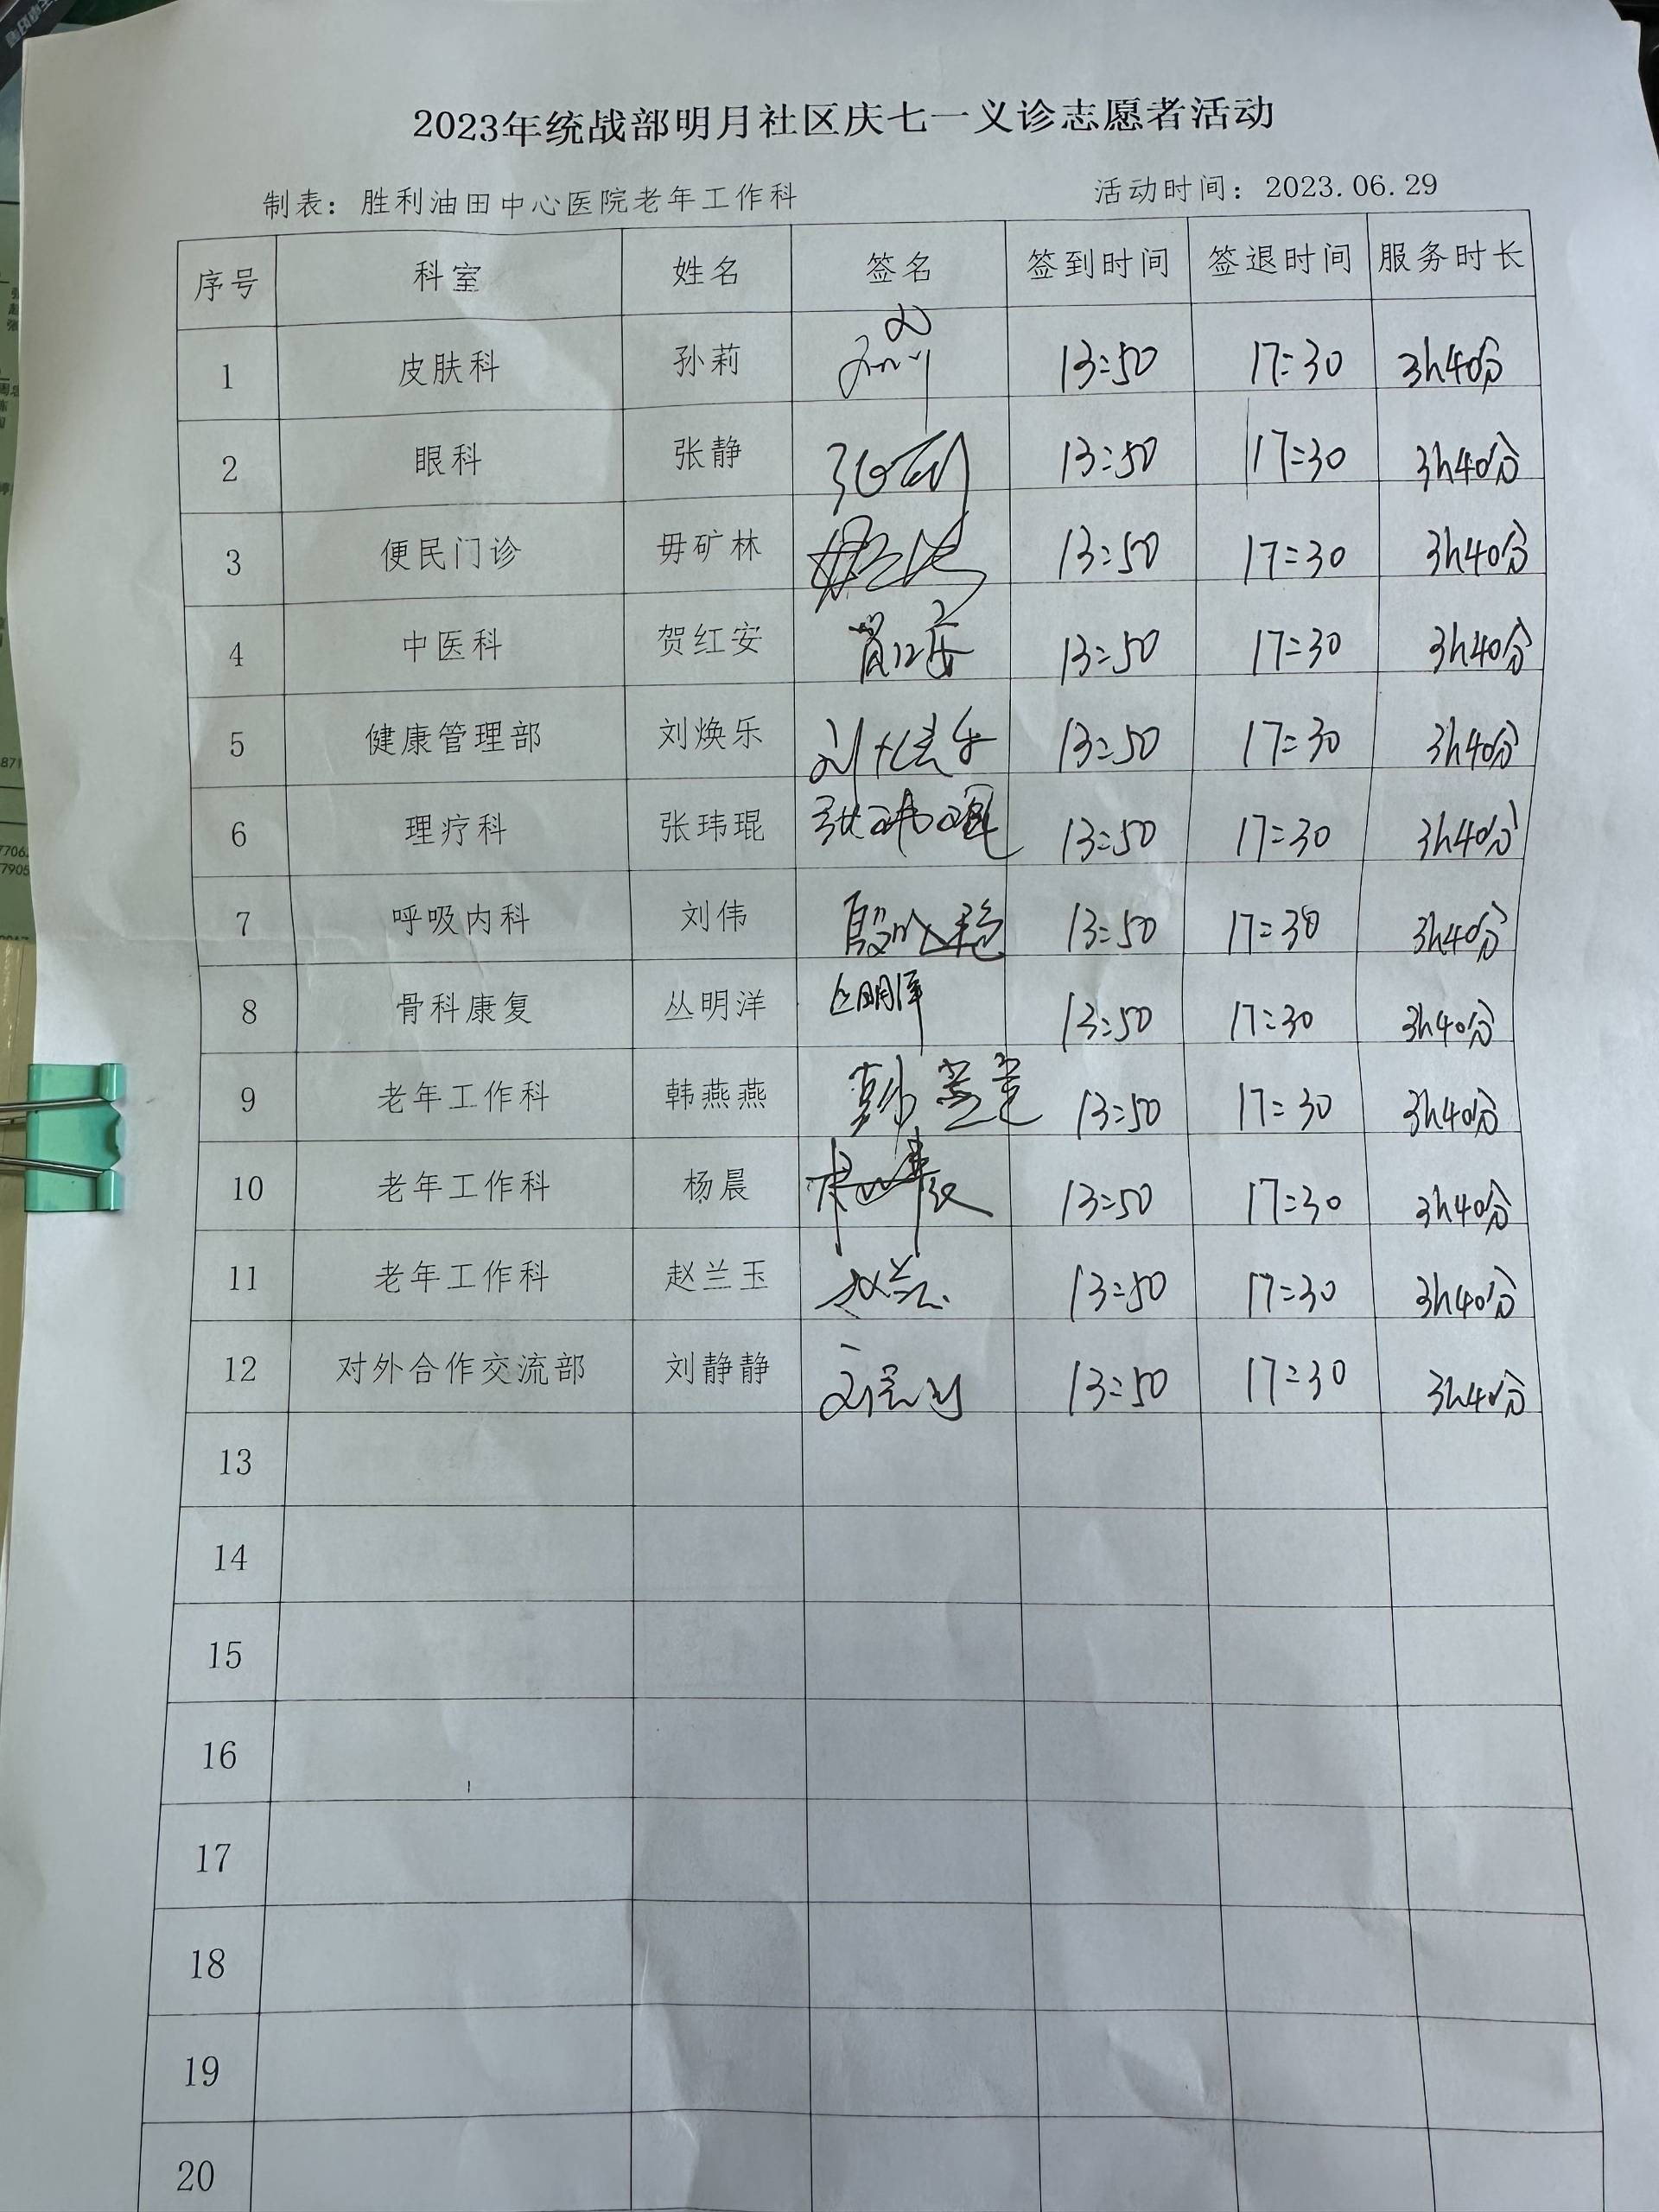 2023年统战部明月社区庆七一义诊志愿者活动
制表：胜利油田中心医院老年工作科 活动时间：2023.06.29
序号 科室 姓名 签名 签到时间 签退时间 服务时长
1 皮肤科 孙莉 13:50 17:30 3h40分
2 眼科 张静 13:50 17:30 3h40分
3 便民门诊 毋矿林 13:50 17:30 3h40分
4 中医科 贺红安 贺红安 13:50 17:30 3h40分
5 健康管理部 刘焕乐 刘焕乐 13:50 17:30 3h40分
6 理疗科 张玮琨 张玮琨 13:50 17:30 3h40分
7 呼吸内科 刘伟 13:50 17:30 3h40分
8 骨科康复 丛明洋 丛明洋 13:50 17:30 3h40分
9 老年工作科 韩燕燕 韩燕燕 13:50 17:30 3h40分
10 老年工作科 杨晨 杨晨 13:50 17:30 3h40分
11 老年工作科 赵兰玉 赵兰玉 13:50 17:30 3h40分
12 对外合作交流部 刘静静 13:50 17:30 3h40分
13
14
15
16
17
18
19
20